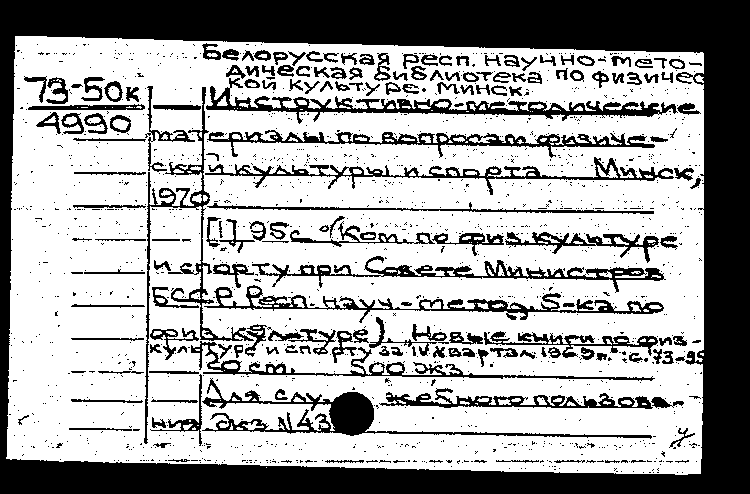 Белорусская респ. научно-мето-
дическая библиотека по физичес
кой культуре. Минск.
73-50к
4990
Инструктивно-методические
материалы по вопросам физиче-
ской культуры и спорта Минск,
1970.
[1], 95с (Ком. по физ. культуре
и спорту при Совете Министров
БССР. Респ. науч.-метод. б-ка по
физ. культуре). Новые книги по физ-
культуре и спорту за IV квартал 1969 г.": с. 73-95
20 см. 500 экз.
Для служебного пользова-
ния экз N43
у